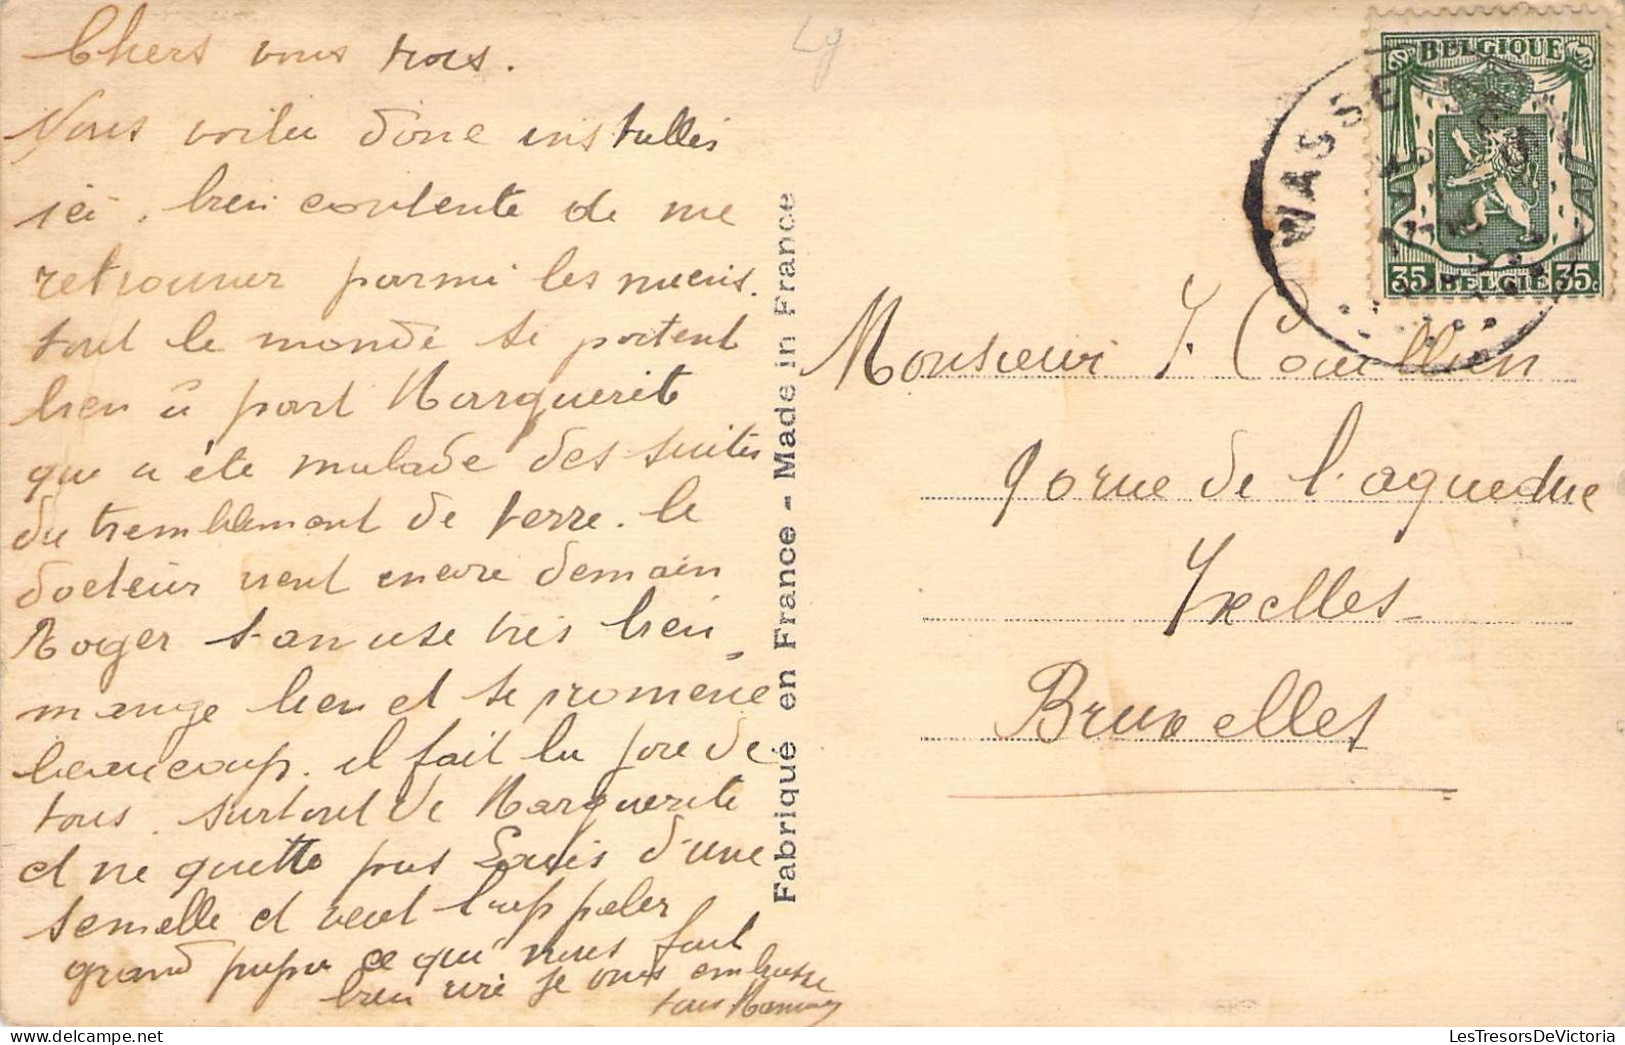 Chers vous trois.
Nous voila donc installés
ici, bien contente de me
retrouver parmi les miens.
tout le monde se portent
bien à part Marguerite
qui a été malade des suites
du tremblement de terre. le
docteur vient encore demain
Roger s'amuse très bien,
mange bien et se promene
beaucoup. il fait la joie de
tous. surtout de Marguerite
et ne quitte pas Louis d'une
semelle et veut l'appeler
grand papa ce qui nous fait
bien rire je vous embrasse
tous Maman
Fabriqué en France - Made in France
BELGIQUE
35c 35c
BELGIE
Monsieur J. Couillien
90 rue de l'aqueduc
Ixelles
Bruxelles
LesTresorsDeVictoria